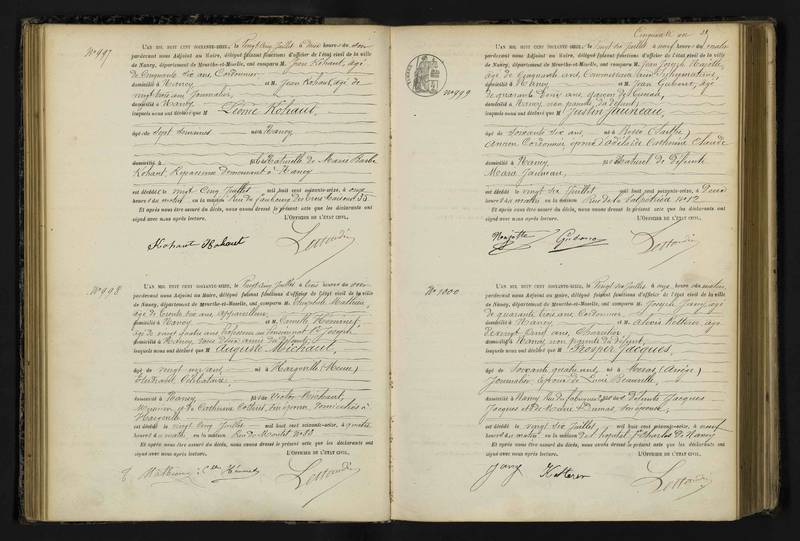 N° 997
L'AN MIL HUIT CENT SOIXANTE-SEIZE, le vingt cinq Juillet à deux heures du soir
pardevant nous Adjoint au Maire, délégué faisant fonctions d'officier de l'état civil de la ville
de Nancy, département de Meurthe-et-Moselle, ont comparu M. Jean Kohaut, âgé
de cinquante six ans, Cordonnier
domicilié à Nancy et M. Jean Kohaut, âgé de
vingt trois ans, Journalier
domicilié à Nancy
lesquels nous ont déclaré que M Léonie Kohaut,
âgé de sept semaines né à Nancy
domicilié à fille Naturelle de Marie Barbe
Kohaut, Repasseuse demeurant à Nancy
est décédé le vingt cinq Juillet mil huit cent soixante-seize, à onze
heures du matin en la maison Rue du faubourg des trois maisons 55
Et après nous être assuré du décès, nous avons dressé le présent acte que les déclarants ont
signé avec nous après lecture. L'OFFICIER DE L'ÉTAT CIVIL,
Kohaut Kohaut
N° 998
L'AN MIL HUIT CENT SOIXANTE-SEIZE, le vingt cinq Juillet à trois heures du soir
pardevant nous Adjoint au Maire, délégué faisant fonctions d'officier de l'état civil de la ville
de Nancy, département de Meurthe-et-Moselle, ont comparu M. Mathieu,
âgé de trente six ans, Appariteur
domicilié à Nancy et M. Camille
âgé de vingt quatre ans, Professeur au Pensionnat St Joseph
domicilié à Nancy, tous deux amis du défunt
lesquels nous ont déclaré que M Auguste Michaut,
âgé de vingt un ans né à Hargeville (Meuse)
Étudiant, Célibataire,
domicilié à Nancy fils de Victor Michaut,
Meunier et de Catherine domiciliés à
Hargeville
est décédé le vingt cinq Juillet mil huit cent soixante-seize, à quatre
heures du matin en la maison Rue de
Et après nous être assuré du décès, nous avons dressé le présent acte que les déclarants ont
signé avec nous après lecture. L'OFFICIER DE L'ÉTAT CIVIL,
Mathieu
Cinquante un
N° 999
L'AN MIL HUIT CENT SOIXANTE-SEIZE, le vingt six Juillet à neuf heures du matin
pardevant nous Adjoint au Maire, délégué faisant fonctions d'officier de l'état civil de la ville
de Nancy, département de Meurthe-et-Moselle, ont comparu M. Jean Joseph
âgé de cinquante ans,
domicilié à Nancy et M. Jean âgé
de quarante trois ans, garçon de bureau,
domicilié à Nancy, non parents du défunt
lesquels nous ont déclaré que M Justin Jauneau,
âgé de soixante six ans, né à
ancien Cordonnier, époux d'Adélaïde Catherine Claude
domicilié à Nancy fils Naturel de défunte
Jauneau,
est décédé le vingt six Juillet mil huit cent soixante-seize, à deux
heures du matin en la maison Rue de la Salpêtrière N° 12
Et après nous être assuré du décès, nous avons dressé le présent acte que les déclarants ont
signé avec nous après lecture. L'OFFICIER DE L'ÉTAT CIVIL,
N° 1000
L'AN MIL HUIT CENT SOIXANTE-SEIZE, le vingt six Juillet à onze heures du matin
pardevant nous Adjoint au Maire, délégué faisant fonctions d'officier de l'état civil de la ville
de Nancy, département de Meurthe-et-Moselle, ont comparu M. Joseph Jany, âgé
de quarante trois ans, Cordonnier
domicilié à Nancy et M. Aloïs Ketterer, âgé
de vingt neuf ans,
domicilié à Nancy non parents du défunt
lesquels nous ont déclaré que M Prosper Jacques,
âgé de soixante quatre ans, né à
Journalier, époux de
domicilié à Nancy fils de défunts Jacques
Jacques et de Marie
est décédé le vingt six Juillet mil huit cent soixante-seize, à neuf
heures du matin en la maison de l'hôpital St Charles de Nancy
Et après nous être assuré du décès, nous avons dressé le présent acte que les déclarants ont
signé avec nous après lecture. L'OFFICIER DE L'ÉTAT CIVIL,
Jany Ketterer